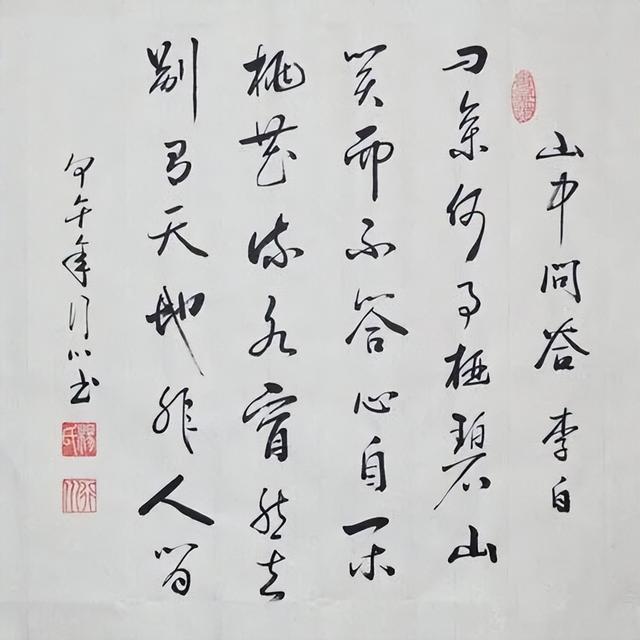 山中問答 李白
问余何事栖碧山
笑而不答心自闲
桃花流水窅然去
别有天地非人间
甲午年 书